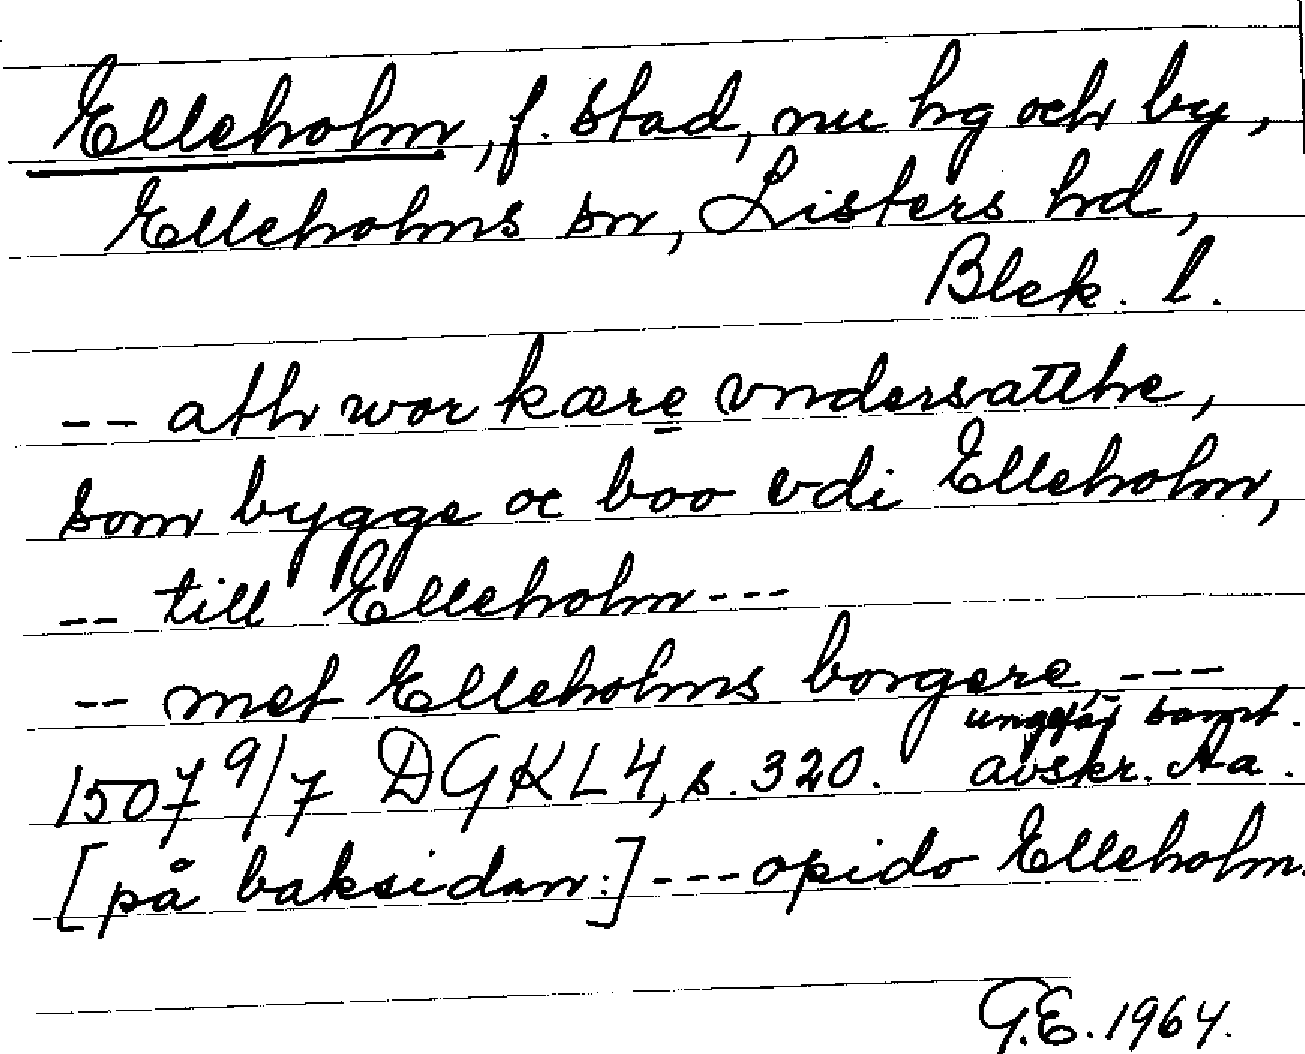 Elleholm, f. stad, nu hg och by,
Elleholms sn, Listers hd,
Blek. l.
-- ath wor kære vndersatthe,
som bygge oc boo vdi Elleholm,
-- till Elleholm ---
-- met Elleholms borgere ---
ungefär samt.
1507 9/7 DGKL 4, s. 320. avskr. Aa.
[på baksidan:] --- opido Elleholm.
G.E. 1964.